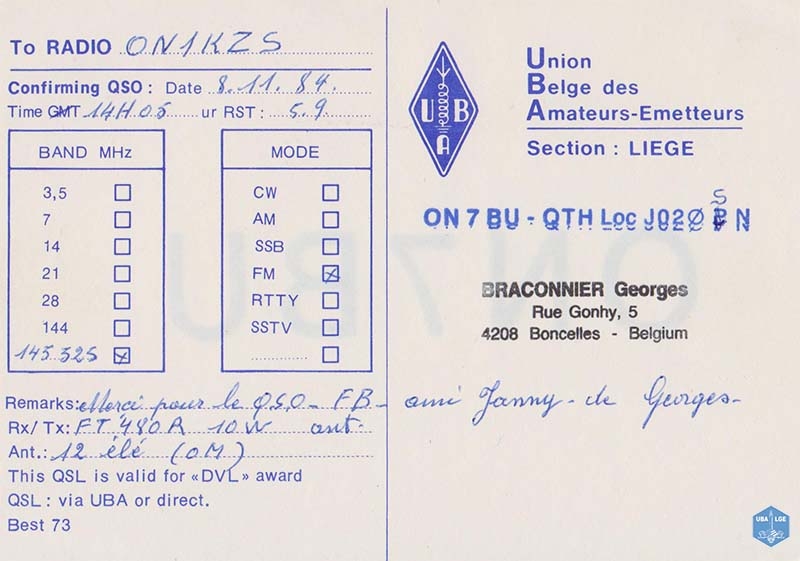 To RADIO ON1KZS
Confirming QSO : Date 8.11.84.
Time GMT 14H05 ur RST : 5.9.
BAND MHz
3,5
7
14
21
28
144
145.525
MODE
CW
AM
SSB
FM
RTTY
SSTV
Remarks: Merci pour le QSO - FB - ami Janny - de Georges -
Rx/Tx: FT 480R 10W ant.
Ant.: 12 élé (OM)
This QSL is valid for «DVL» award
QSL : via UBA or direct.
Best 73
UBA
Union
Belge des
Amateurs-Emetteurs
Section : LIEGE
ON 7 BU - QTH Loc J020 S N
BRACONNIER Georges
Rue Gonhy, 5
4208 Boncelles - Belgium
UBA LGE